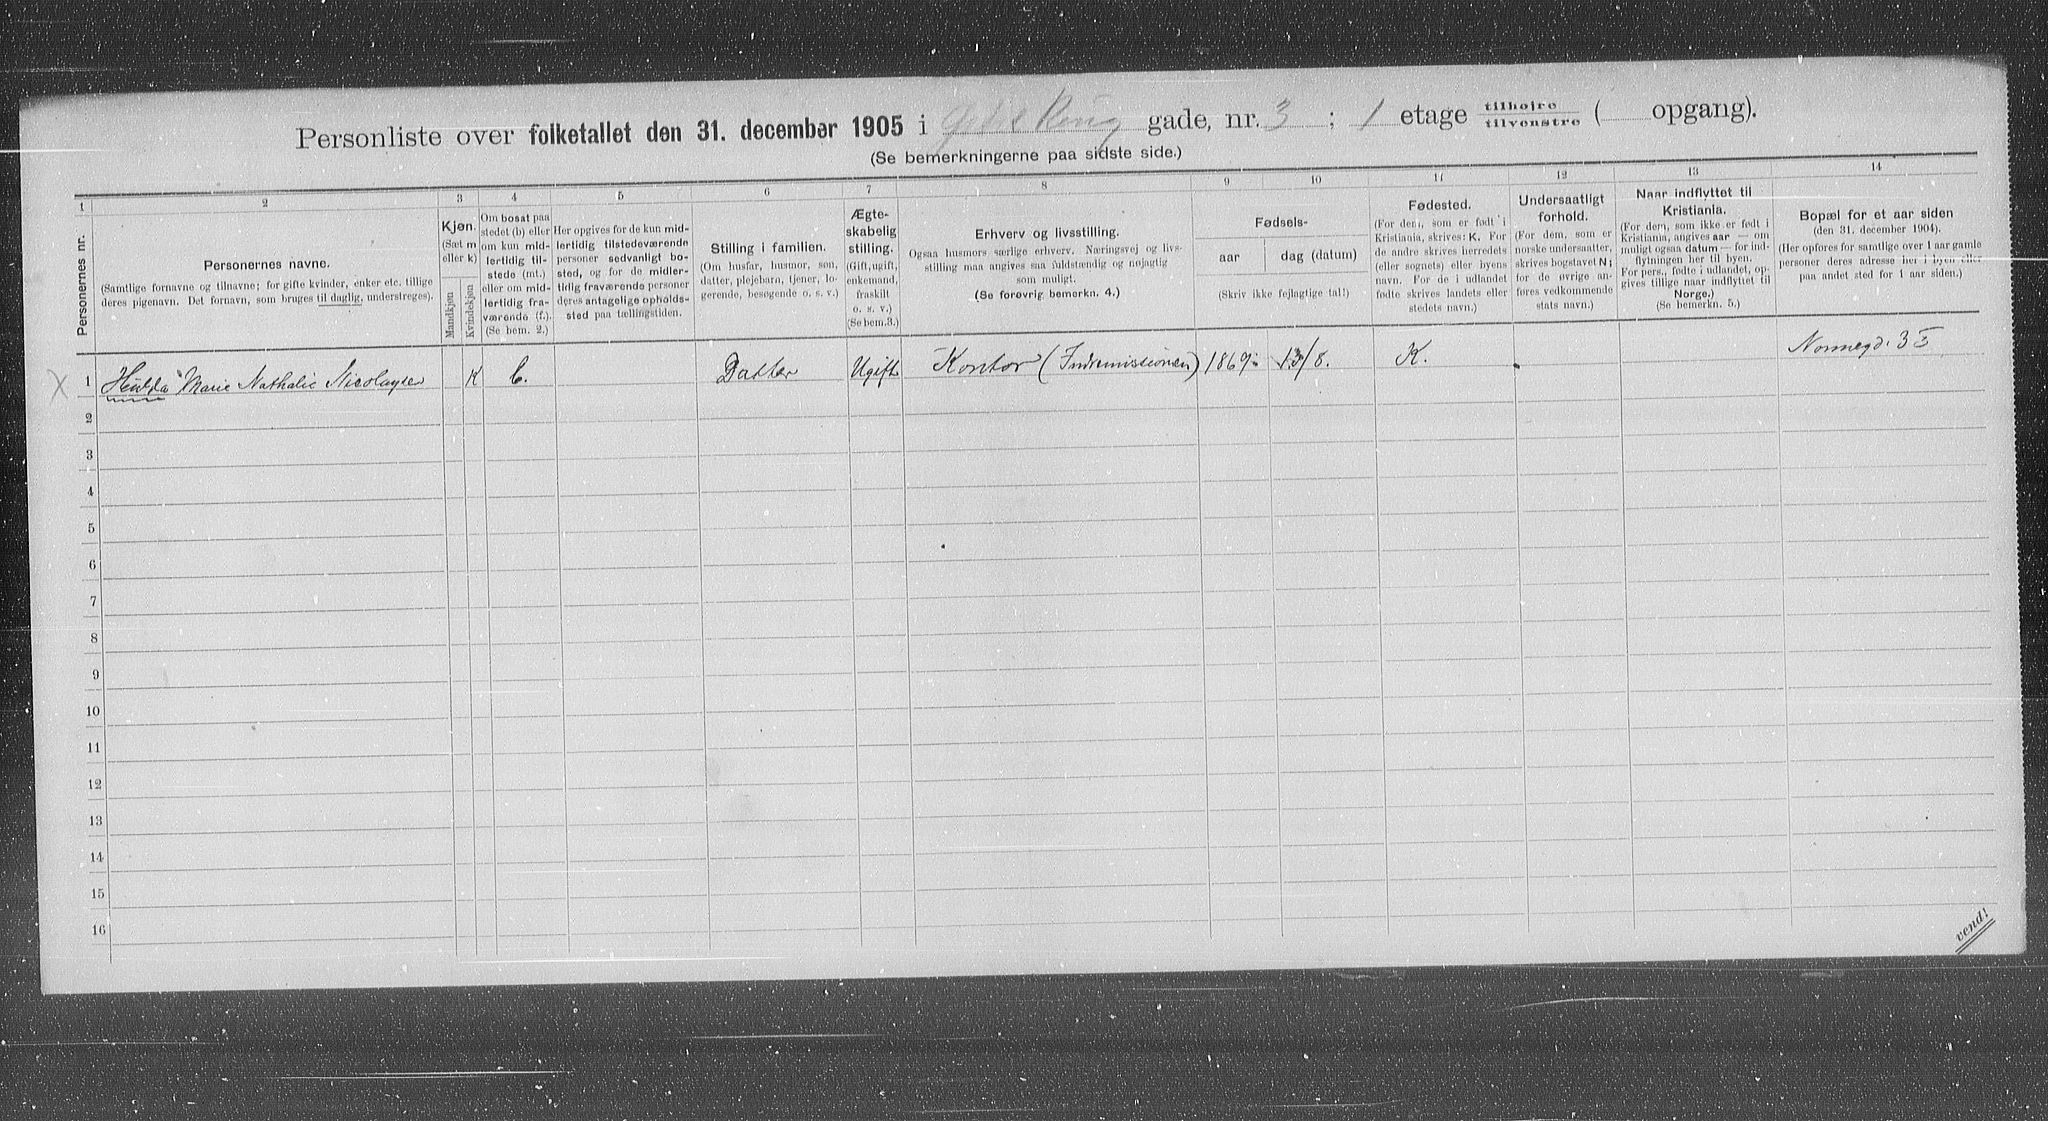 Personliste over folketallet den 31. december 1905 i gade, nr. 3 ; 1 etage tilhøjre tilvenstre ( opgang).
(Se bemerkningerne paa sidste side.)
1 2 3 4 5 6 7 8 9 10 11 12 13 14
Personernes nr.
Personernes navne.
(Samtlige fornavne og tilnavne; for gifte kvinder, enker etc. tillige
deres pigenavn. Det fornavn, som bruges til daglig, understreges).
Kjøn.
(Sæt m
eller k)
Mandkjøn
Kvindekjøn
Om bosat paa
stedet (b) eller
om kun mid-
lertidig til-
stede (mt.)
eller om mid-
lertidig fra-
værende (f.).
(Se bem. 2.)
Her opgives for de kun mid-
lertidig tilstedeværende
personer sedvanligt bo-
sted, og for de midler-
tidig fraværende personer
deres antagelige opholds-
sted paa tællingstiden.
Stilling i familien.
(Om husfar, husmor, søn,
datter, plejebarn, tjener, lo-
gerende, besøgende o. s. v.)
Ægte-
skabelig
stilling.
(Gift, ugift,
enkemand,
fraskilt
o. s. v.)
(Se bem.3.)
Erhverv og livsstilling.
Ogsaa husmors særlige erhverv. Næringsvej og livs-
stilling maa angives saa fuldstændig og nøjagtig
som muligt.
(Se forøvrig bemerkn. 4.)
Fødsels-
aar
dag (datum)
(Skriv ikke fejlagtige tal!)
Fødested.
(For dem, som er født i
Kristiania, skrives: K. For
de andre skrives herredets
(eller sognets) eller byens
navn. For de i udlandet
fødte skrives landets eller
stedets navn.)
Undersaatligt
forhold.
(For dem, som er
norske undersaatter,
skrives bogstavet N;
for de øvrige an-
føres vedkommende
stats navn.)
Naar indflyttet til
Kristiania.
(For dem, som ikke er født i
Kristiania, angives aar — om
muligt ogsaa datum — for ind-
flytningen her til byen.
For pers., fødte i udlandet, op-
gives tillige naar indflyttet til
Norge.)
(Se bemerkn. 5.)
Bopæl for et aar siden
(den 31. december 1904).
(Her opføres for samtlige over 1 aar gamle
personer deres adresse her i byen eller
paa andet sted for 1 aar siden.)
X 1 Hulda Marie Nathalie Nicolaysen K b. Datter Ugift Kontor (Indremissionen) 1869 13/8. K. Nonnegd. 3 I
2
3
4
5
6
7
8
9
10
11
12
13
14
15
16
vend!